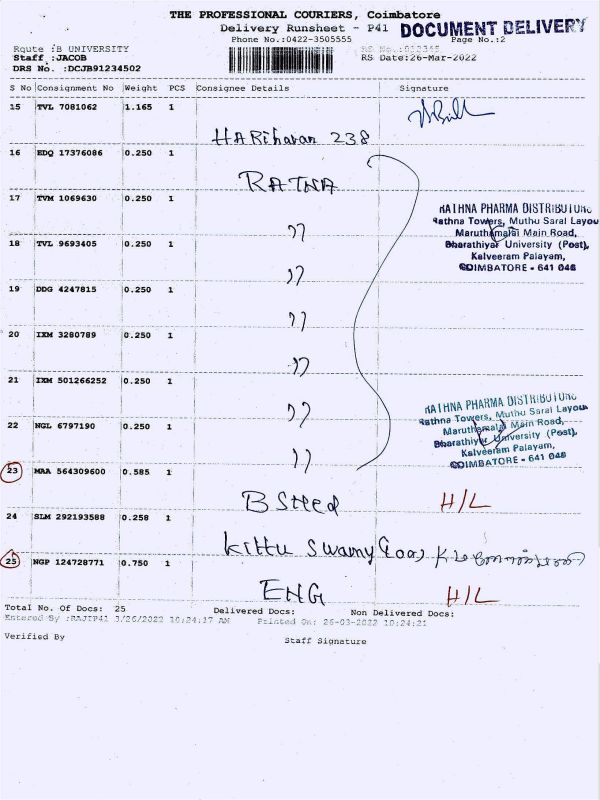 THE PROFESSIONAL COURIERS, Coimbatore
Delivery Runsheet - P41 DOCUMENT DELIVERY
Phone No.:0422-3505555 Page No.:2
Route :B UNIVERSITY RS No.:912345
Staff :JACOB RS Date:26-Mar-2022
DRS No. :DCJB91234502
S No Consignment No Weight PCS Consignee Details Signature
15 TVL 7081062 1.165 1
HARiharan 238
16 EDQ 17376086 0.250 1
RATNA
17 TVM 1069630 0.250 1
RATHNA PHARMA DISTRIBUTORS
Rathna Towers, Muthu Saral Layou
Maruthamalai Main Road,
Bharathiyar University (Post),
Kalveeram Palayam,
COIMBATORE - 641 046
"
18 TVL 9693405 0.250 1
"
19 DDG 4247815 0.250 1
"
20 IXM 3280789 0.250 1
"
21 IXM 501266252 0.250 1
"
RATHNA PHARMA DISTRIBUTORS
Rathna Towers, Muthu Saral Layou
Maruthamalai Main Road,
Bharathiyar University (Post),
Kalveeram Palayam,
COIMBATORE - 641 046
22 NGL 6797190 0.250 1
"
23 MAA 564309600 0.585 1
B Steel H/L
24 SLM 292193588 0.258 1
Kittu Swamy
25 NGP 124728771 0.750 1
ENG H/L
Total No. Of Docs: 25 Delivered Docs: Non Delivered Docs:
Entered By :RAJIP41 3/26/2022 10:24:17 AM Printed On: 26-03-2022 10:24:21
Verified By Staff Signature